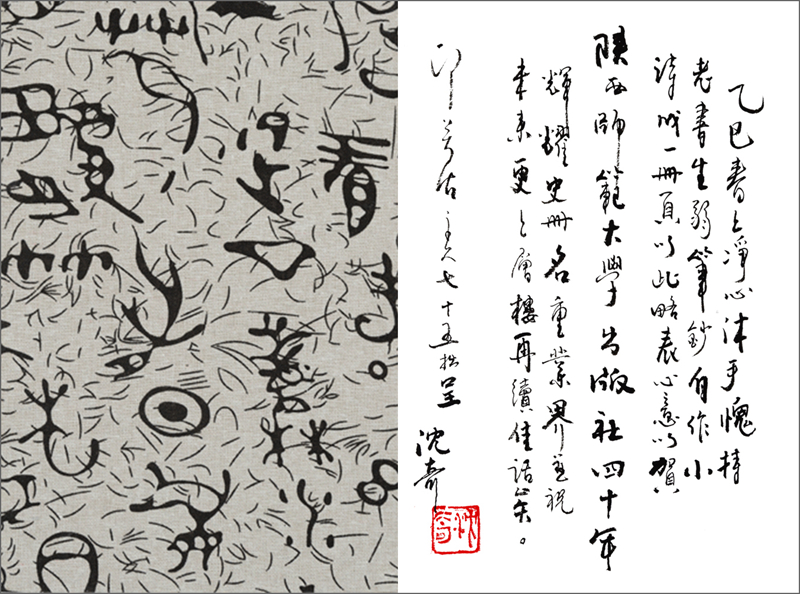 乙巳春上凈心沐手愧持
老書生弱筆鈔自作小
詩成一冊頁以此略表心意以賀
陝西師範大學出版社四十年
輝耀史冊名重業界並祝
未來更上層樓再續佳話矣。
印若居主人七十五拙呈
沈奇